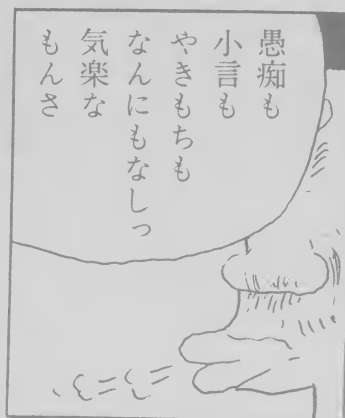 愚痴も
小言も
やきもちも
なんにもなしっ
気楽な
もんさ